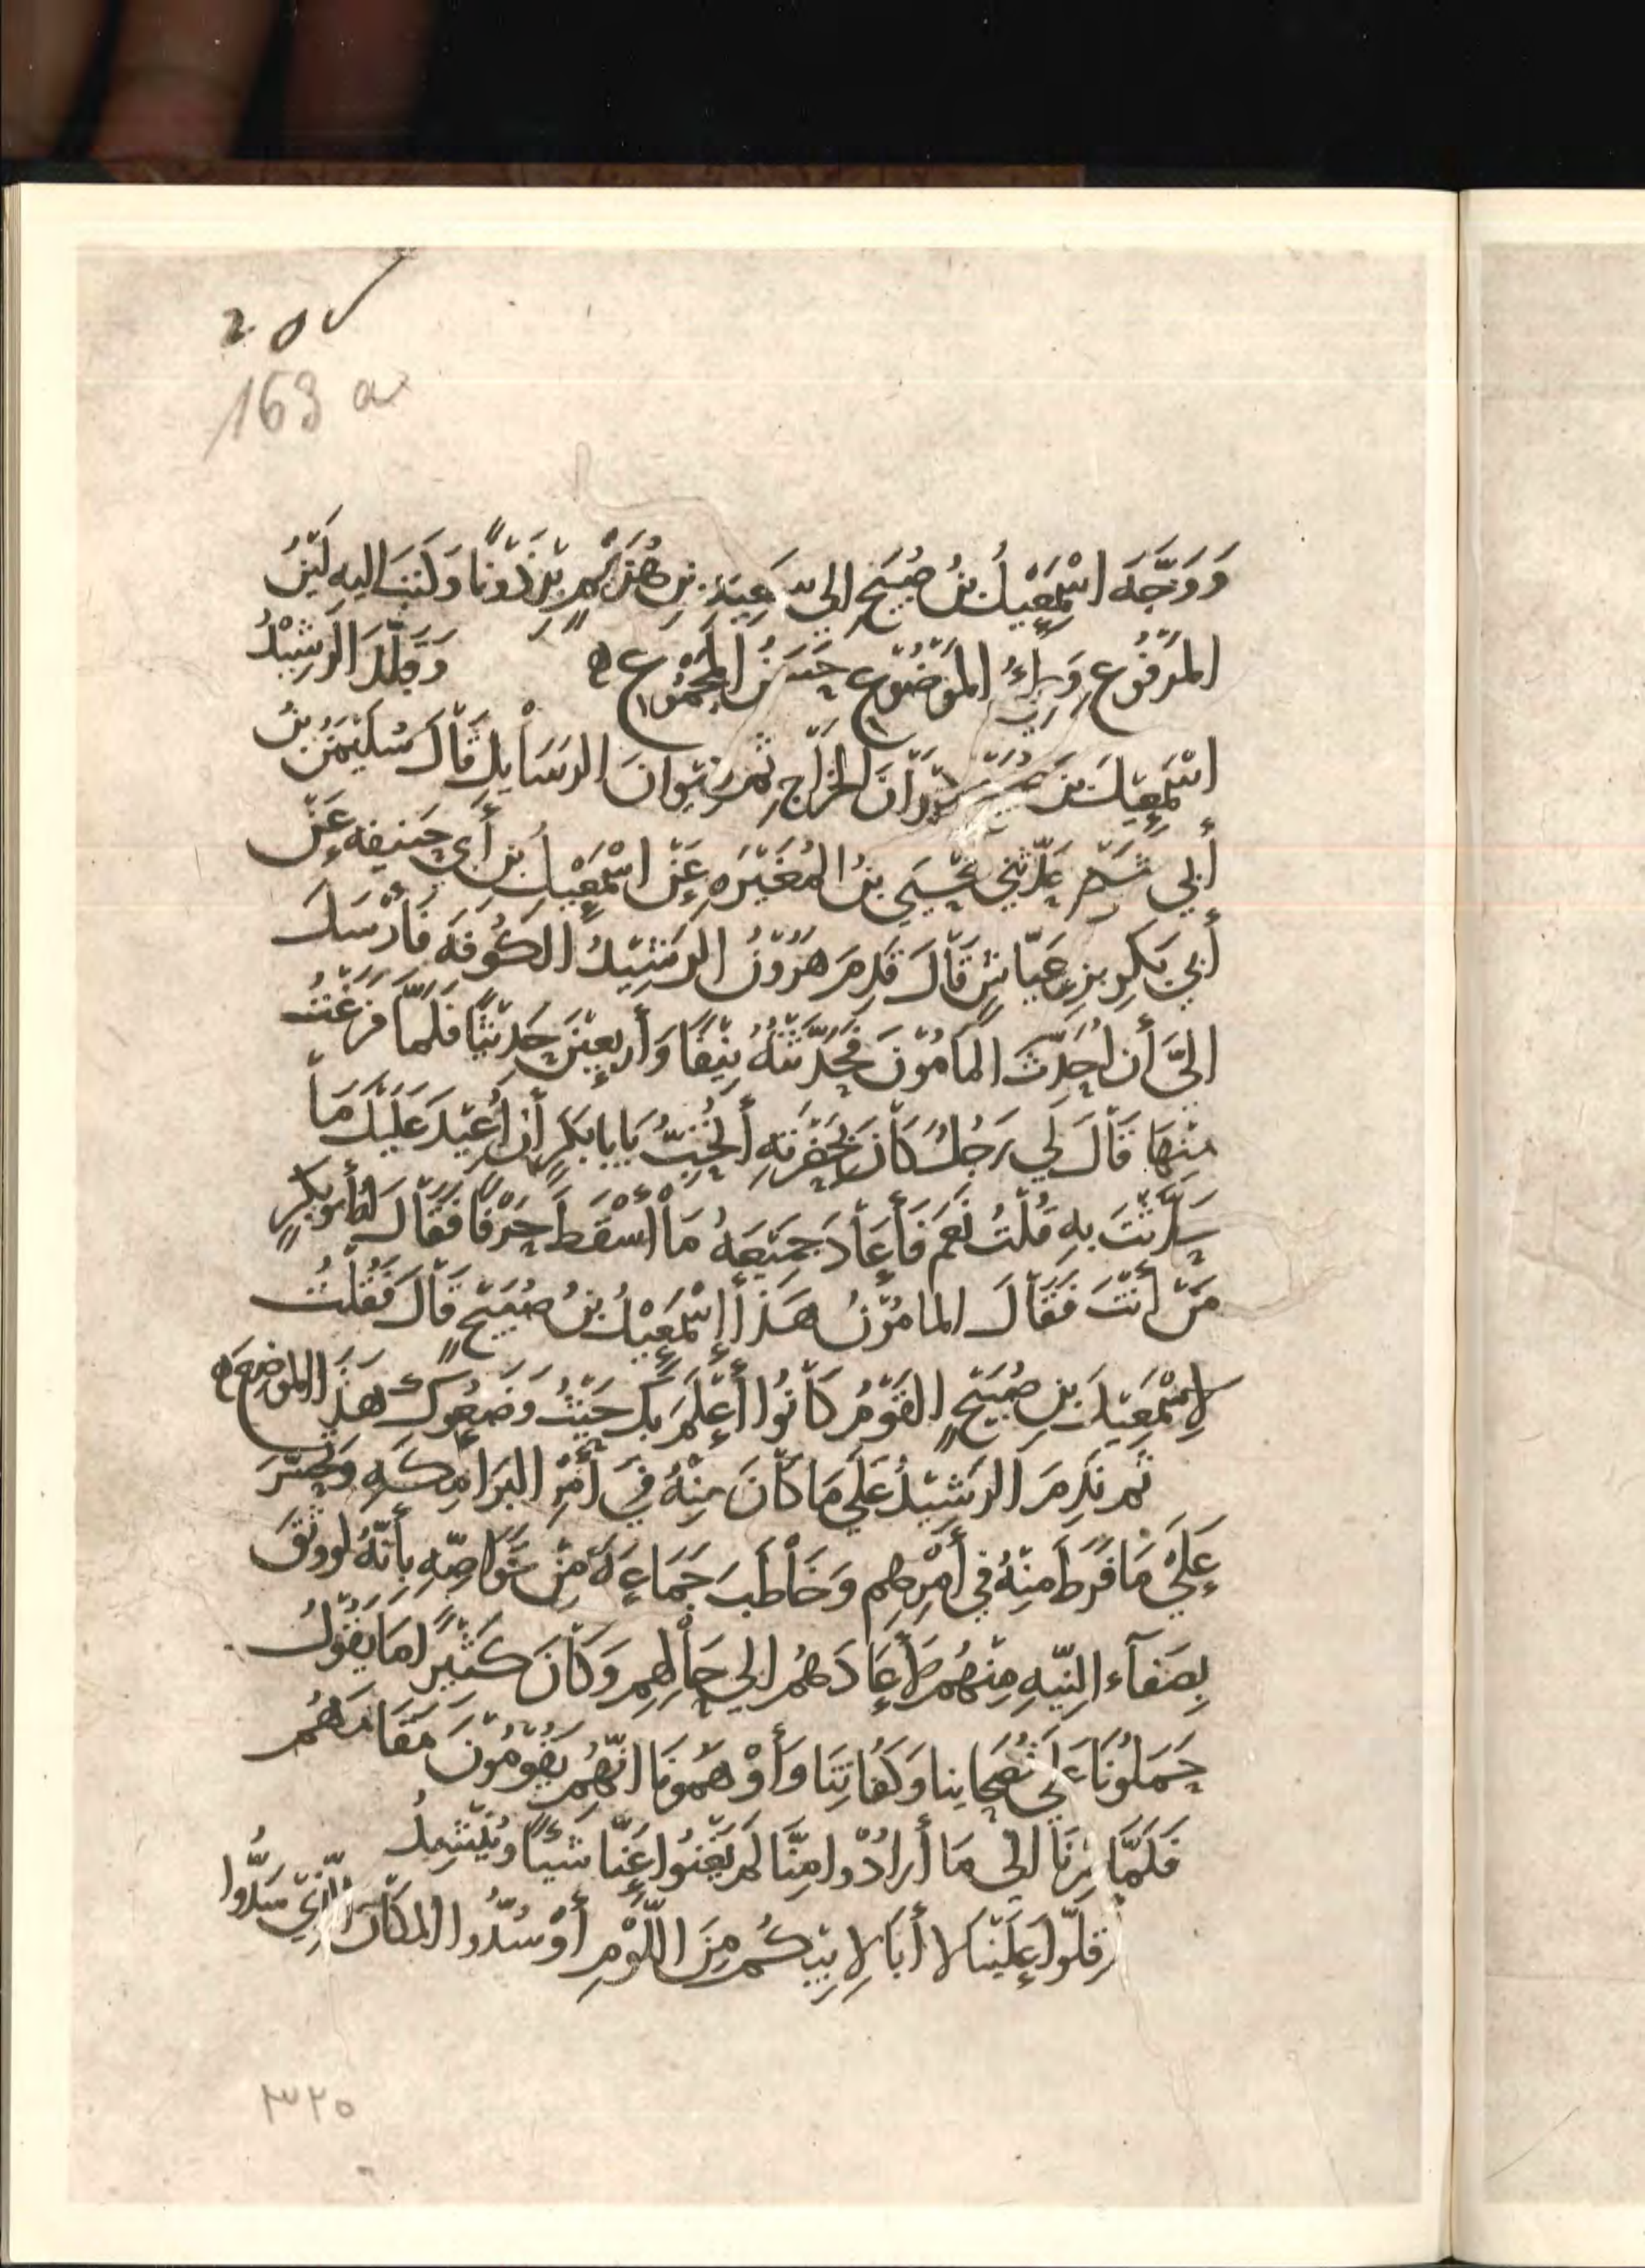 ٢٥٧
163 a
وَوَجَّهَ اسْمَعِيْلُ بنُ صُبَيْحٍ إلى سَعِيدِ بنِ هُرَيْمٍ بِرْذَوْنًا وَكَتَبَ اليه لَيِّنُ
المَرْفُوعِ وَطِئُ المَوْضُوْعِ حَسَنُ المَجْمُوْعِ ٥ وَقَلَّدَ الرَشِيْدُ
اسْمَعِيْلَ بنَ صُبَيْحٍ دِيْوَانَ الخَرَاجِ ثم دِيْوَانَ الرَسَايِلِ قَالَ سُلَيْمَنُ بنُ
أبي شَيْخٍ حَدَّثَنِي يَحْيَى بنُ المُغِيْرَه عَنْ اسْمَعِيْلَ بنِ أَبي حَنِيفَه عَنْ
أبي بَكرِ بنِ عَيَّاشٍ قَالَ قَدِمَ هَرُوْنُ الرَشِيْدُ الكُوفَه فَأرْسَلَ
اليَّ أن أُحَدِّثَ المَأمُوْنَ فَحَدَّثتُهُ نَيِّفًا وَأَربعِيْنَ حَدِيْثًا فَلَمَّا فَرَغْتُ
مِنهَا قَالَ لي رَجُلٌ كَانَ بِحَضْرَتِهِ أَتُحِبُّ يَابا بَكرٍ أنْ أُعِيْدَ عَلَيْكَ مَا
حَدَّثْتَ به قُلْتُ نَعَم فَأَعَادَ جَمِيْعَهُ مَا أَسْقَطَ حَرْفًا فَقَالَ لهُ أبو بكرٍ
مَنْ أَنْتَ فَقَالَ المامُوْنُ هَذَا إسْمَعِيْلُ بنُ صُبَيْحٍ قَالَ فَقُلْتُ
لإسْمَعِيْلَ بنِ صُبَيْحٍ القَوْمُ كَانُوا أَعْلَمَ بكَ حَيْثُ وَضَعُوكَ هَذَا المَوْضِعَ ٥
ثم نَدِمَ الرَشِيْدُ عَلَى مَا كَانَ مِنْهُ في أَمْرِ البَرَامِكَه وَتَحَسَّرَ
عَلَى مَا فَرَطَ مِنهُ في أَمْرِهِم وَخَاطَبَ جَمَاعَةً مِنْ خَوَاصِّهِ بِأَنَّهُ لو وَثِقَ
بِصَفَاء النِيَّه مِنْهُم لأَعَادَهُم الى حَالِهِم وَكَانَ كَثِيْرًا مَا يَقُوْلُ
حَمَلُونَا عَلَى نُصَحَاينا وَكُفَاتِنَا وَأَوْهَمُونَا انَّهُم يَقُوْمُوْنَ مَقَامَهُم
فَلَمَّا صِرْنَا الى مَا أَرَادُوا مِنَّا لم يُغْنُوا عَنَّا شَيْئًا وَيُنْشِدُ
أقِلّوا عَلَيْنَا لا أَبَا لأبيكُم مِنَ اللَّوْمِ أَوْ سُدُّوا المَكَانَ الَّذِي سَدُّوا
٣٢٥